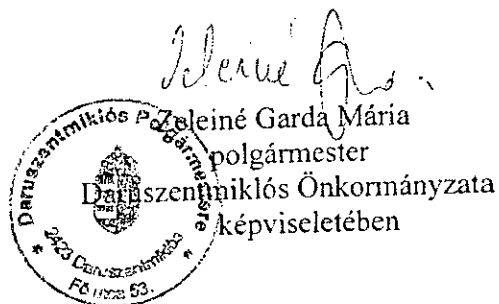 Zeleiné Garda Mária
polgármester
Daruszentmiklós Önkormányzata
képviseletében
Daruszentmiklós Polgármestere
* 2423 Daruszentmiklós *
Fő utca 53.